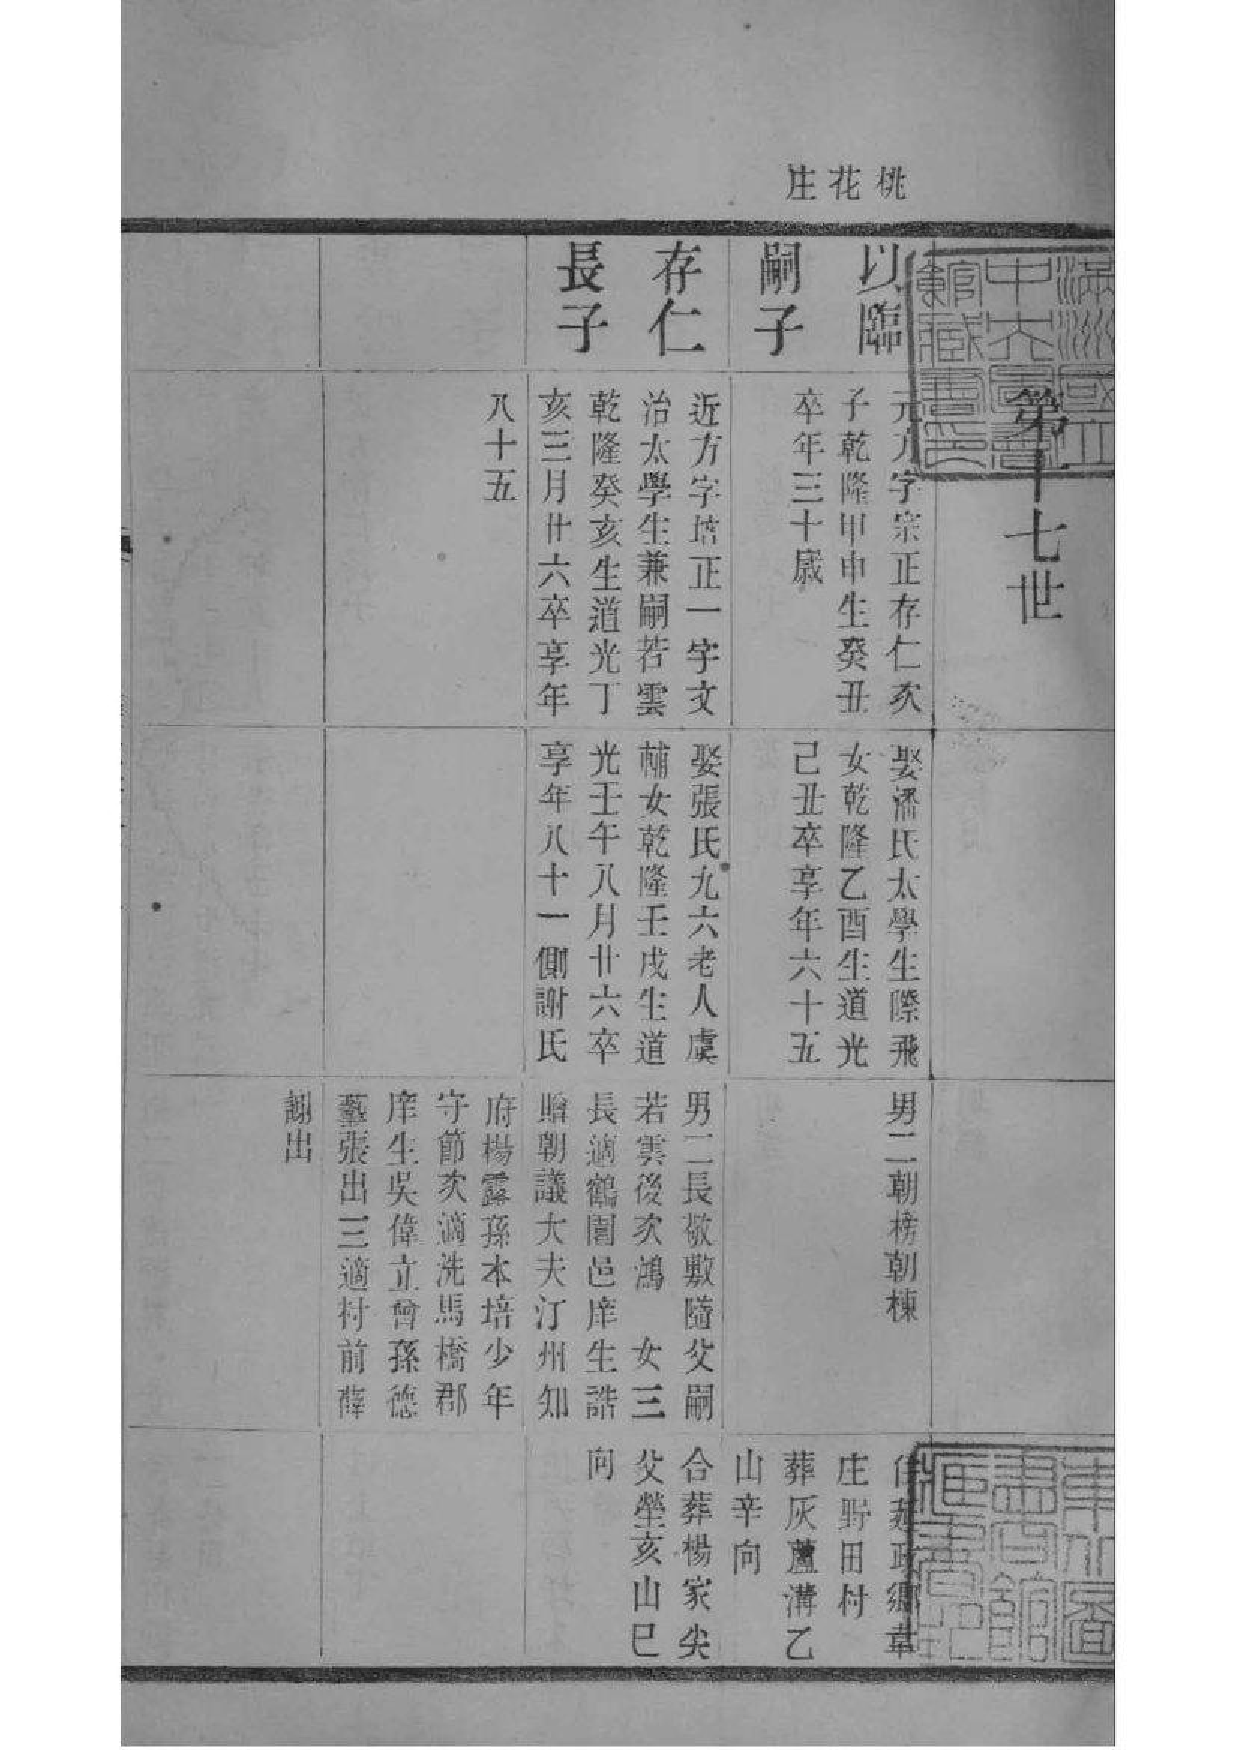 桃花庄
第十七世
以臨
嗣子
元方字宗正存仁次
子乾隆甲申生癸丑
卒年三十歲
娶潘氏太學生際飛
女乾隆乙酉生道光
己丑卒享年六十五
男二朝榜朝棟
住延政鄉韋
庄野田村
葬灰蘆溝乙
山辛向
存仁
長子
近方字培正一字文
治太學生兼嗣若雲
乾隆癸亥生道光丁
亥三月廿六卒享年
八十五
娶張氏九六老人虞
輔女乾隆壬戌生道
光壬午八月廿六卒
享年八十一側謝氏
男二長敬敷隨父嗣
若雲後次鴻 女三
長適鶴園邑庠生誥
贈朝議大夫汀州知
府楊露孫本培少年
守節次適洗馬橋郡
庠生吳偉立曾孫德
藝張出三適村前薛
謝出
合葬楊家尖
父塋亥山巳
向
滿洲國立
中央圖書
館藏書印